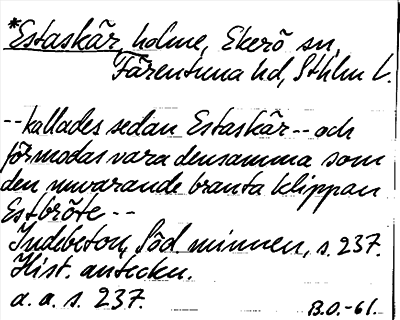 *Estaskär, holme, Ekerö sn,
Färentuna hd, Sthlm l.
--kallades sedan Estaskär--och
förmodas vara densamma som
den nuvarande branta klippan
Estbröte--
Indebetou, Söd. minnen, s. 237.
Hist. anteckn.
a. a. s. 237.
B.O.-61.